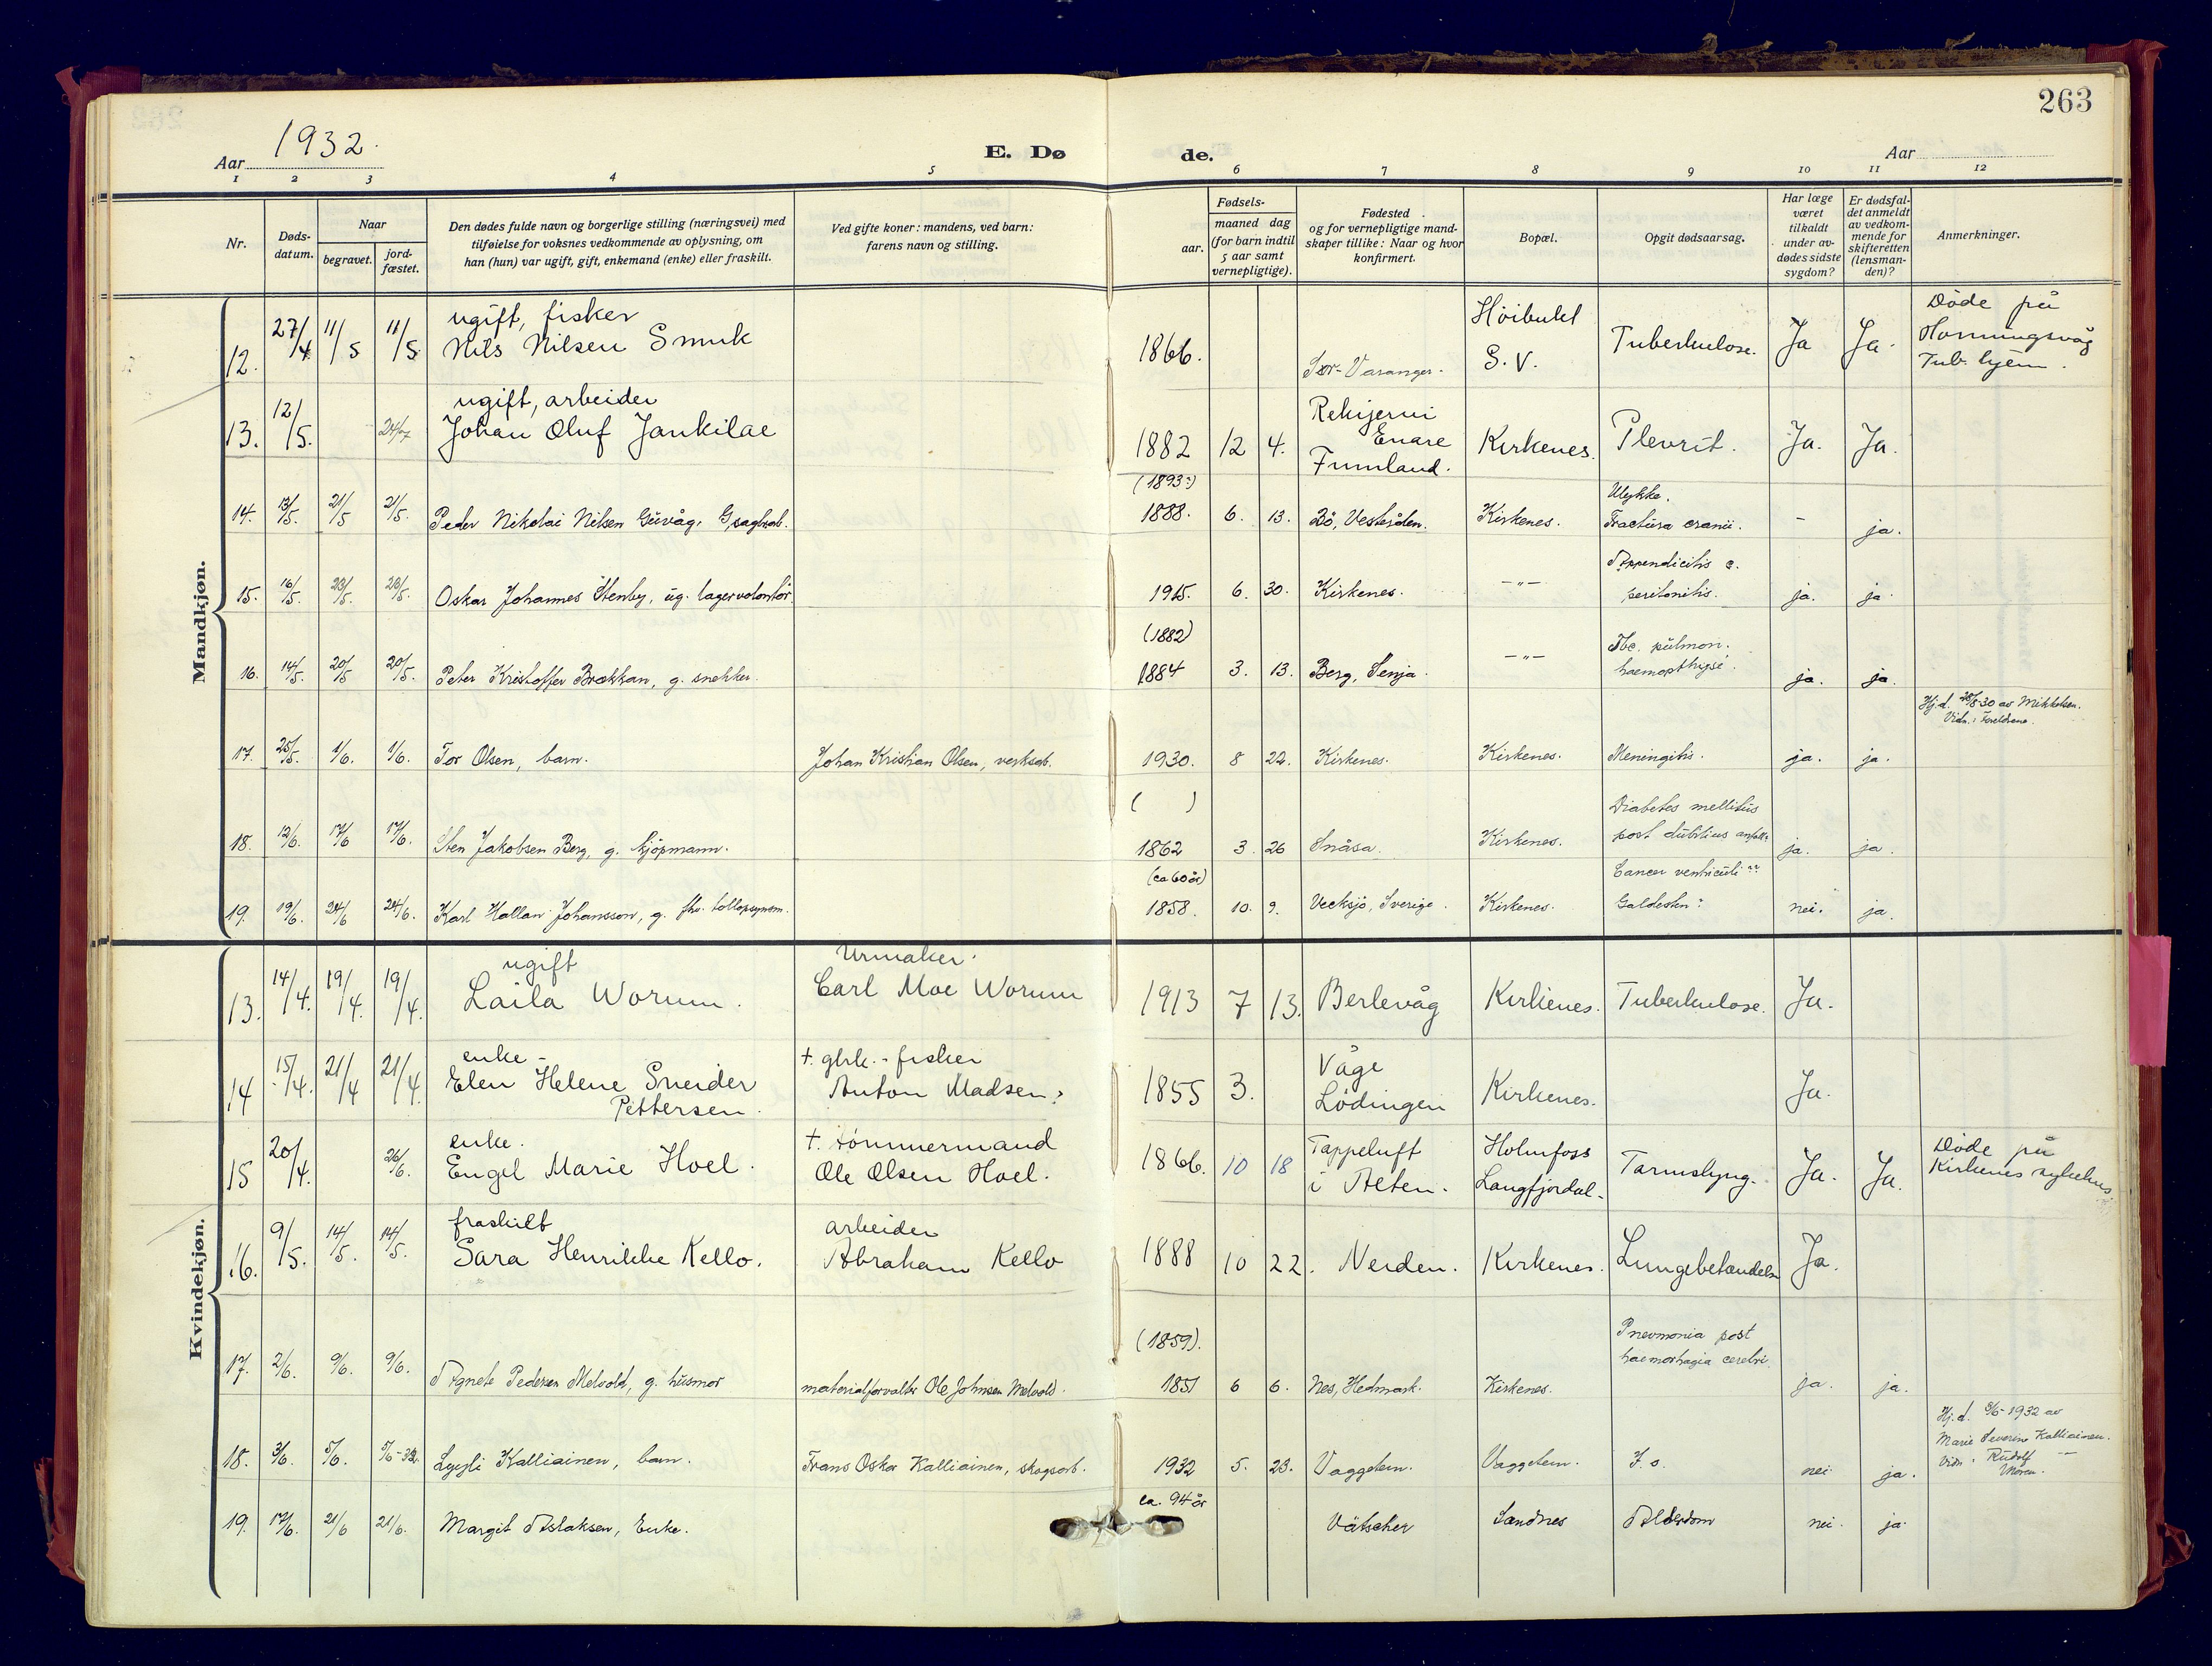 263
Aar 1932.
E. Døde.
Aar
1 2 3 4 5 6 7 8 9 10 11 12
Nr.
Døds-
datum.
Naar
begravet.
jord-
fæstet.
Den dødes fulde navn og borgerlige stilling (næringsvei) med
tilføielse for voksnes vedkommende av oplysning, om
han (hun) var ugift, gift, enkemand (enke) eller fraskilt.
Ved gifte koner: mandens, ved barn:
farens navn og stilling.
aar.
Fødsels-
maaned dag
(for barn indtil
5 aar samt
vernepligtige).
Fødested
og for vernepligtige mand-
skaper tillike: Naar og hvor
konfirmert.
Bopæl.
Opgit dødsaarsag.
Har læge
været
tilkaldt
under av-
dødes sidste
sygdom?
Er dødsfal-
det anmeldt
av vedkom-
mende for
skifteretten
(lensman-
den)?
Anmerkninger.
Mandkjøn.
12. 27/4 11/5 11/5
ugift, fisker
Nils Nilsen Smuk
1866.
Sør-Varanger.
Höibukt
S. V.
Tuberkulose.
Ja
Ja.
Döde på
Honningsvåg
Tub. hjem.
13. 12/5. 24/7
ugift, arbeider
Johan Oluf Jankilae
1882 12 4.
Enare
Finnland.
Kirkenes.
Plevrit.
Ja.
Ja.
14. 13/5. 21/5 21/5.
Peder Nikolai Nilsen Guvåg, G,
(1893?)
1888. 6. 13.
Bö, Vesterålen.
Kirkenes.
Ulykke.
Fractura cranii.
-
ja.
15. 16/5. 23/5. 23/5.
Oskar Johannes Stenby, ug. lagervolontör.
1915. 6. 30.
Kirkenes.
-"-
Appendicitis c.
peritonitis.
ja.
ja.
16. 14/5. 20/5 20/5.
Peter Kristoffer Brækkan, g. snekker.
(1882)
1884 3. 13.
Berg, Senja.
-"-
Tbc. pulmon.
ja.
ja.
17. 25/5. 1/6. 1/6.
Tor Olsen, barn.
Johan Kristian Olsen, verksarb.
1930. 8 22.
Kirkenes.
Kirkenes.
Meningitis.
ja.
ja.
Hj.d. 28/8-30 av Mikkelsen.
Vidn.: Foreldrene.
18. 12/6. 17/6 17/6.
Sten Jakobsen Berg, g. kjöpmann.
( )
1862 3. 26
Snåsa.
Kirkenes.
Diabetes mellitus
post
ja.
ja.
19. 19/6. 24/6 24/6.
Karl Hallan Johansson, g. fhv. tollopsynsm.
(ca 60 år)
1858. 10. 9.
Vecksjö, Sverige.
Kirkenes.
Cancer ventriculi??
Galdesten?
nei.
ja.
Kvindekjøn.
13. 14/4. 19/4. 19/4.
ugift
Laila Worum.
Urmaker.
Carl Moe Worum
1913 7 13.
Berlevåg
Kirkenes.
Tuberkulose.
Ja.
14 15/4. 21/4 21/4.
enke -
Elen Helene Sneider
Pettersen.
+. gbrk.-fisker
Anton Madsen?
1855 3.
Våge
Lödingen
Kirkenes.
Ja.
15 20/4. 26/6.
enke.
Engel Marie Hoel.
+. tömmermand
Ole Olsen Hoel.
1866. 10 18
Tappeluft
i Alten.
Holmfoss
Langfjordal-
Tarmslyng.
Ja.
Ja.
Döde på
Kirkenes sykehus.
16. 9/5. 14/5. 14/5.
fraskilt
Sara Henrikke Kello.
arbeider
Abraham Kello
1888 10 22.
Neiden.
Kirkenes.
Lungebetændelse
Ja.
17. 2/6. 9/6. 9/6.
Agnete Pedersen Melvold, g. husmor
materialforvalter Ole Johnsen Melvold.
(1859).
1851 6 6.
Nes, Hedmark.
Kirkenes.
Pneumonia post
haemorhagia cerebri.
ja.
ja.
18. 3/6. 5/6. 5/6-32.
Lyyli Kalliainen, barn.
Frans Oskar Kalliainen, skogsarb.
1932 5. 23.
Vaggetem.
Vaggetem.
nei
ja.
Hj.d. 1932 av
Marie Severine Kalliainen.
Vidn. Rudolf -"-
Moren.
19. 17/6. 21/6 21/6.
Margit Aslaksen, Enke.
ca. 94 år
Vätscher
Sandnes
Alderdom
nei.
ja.